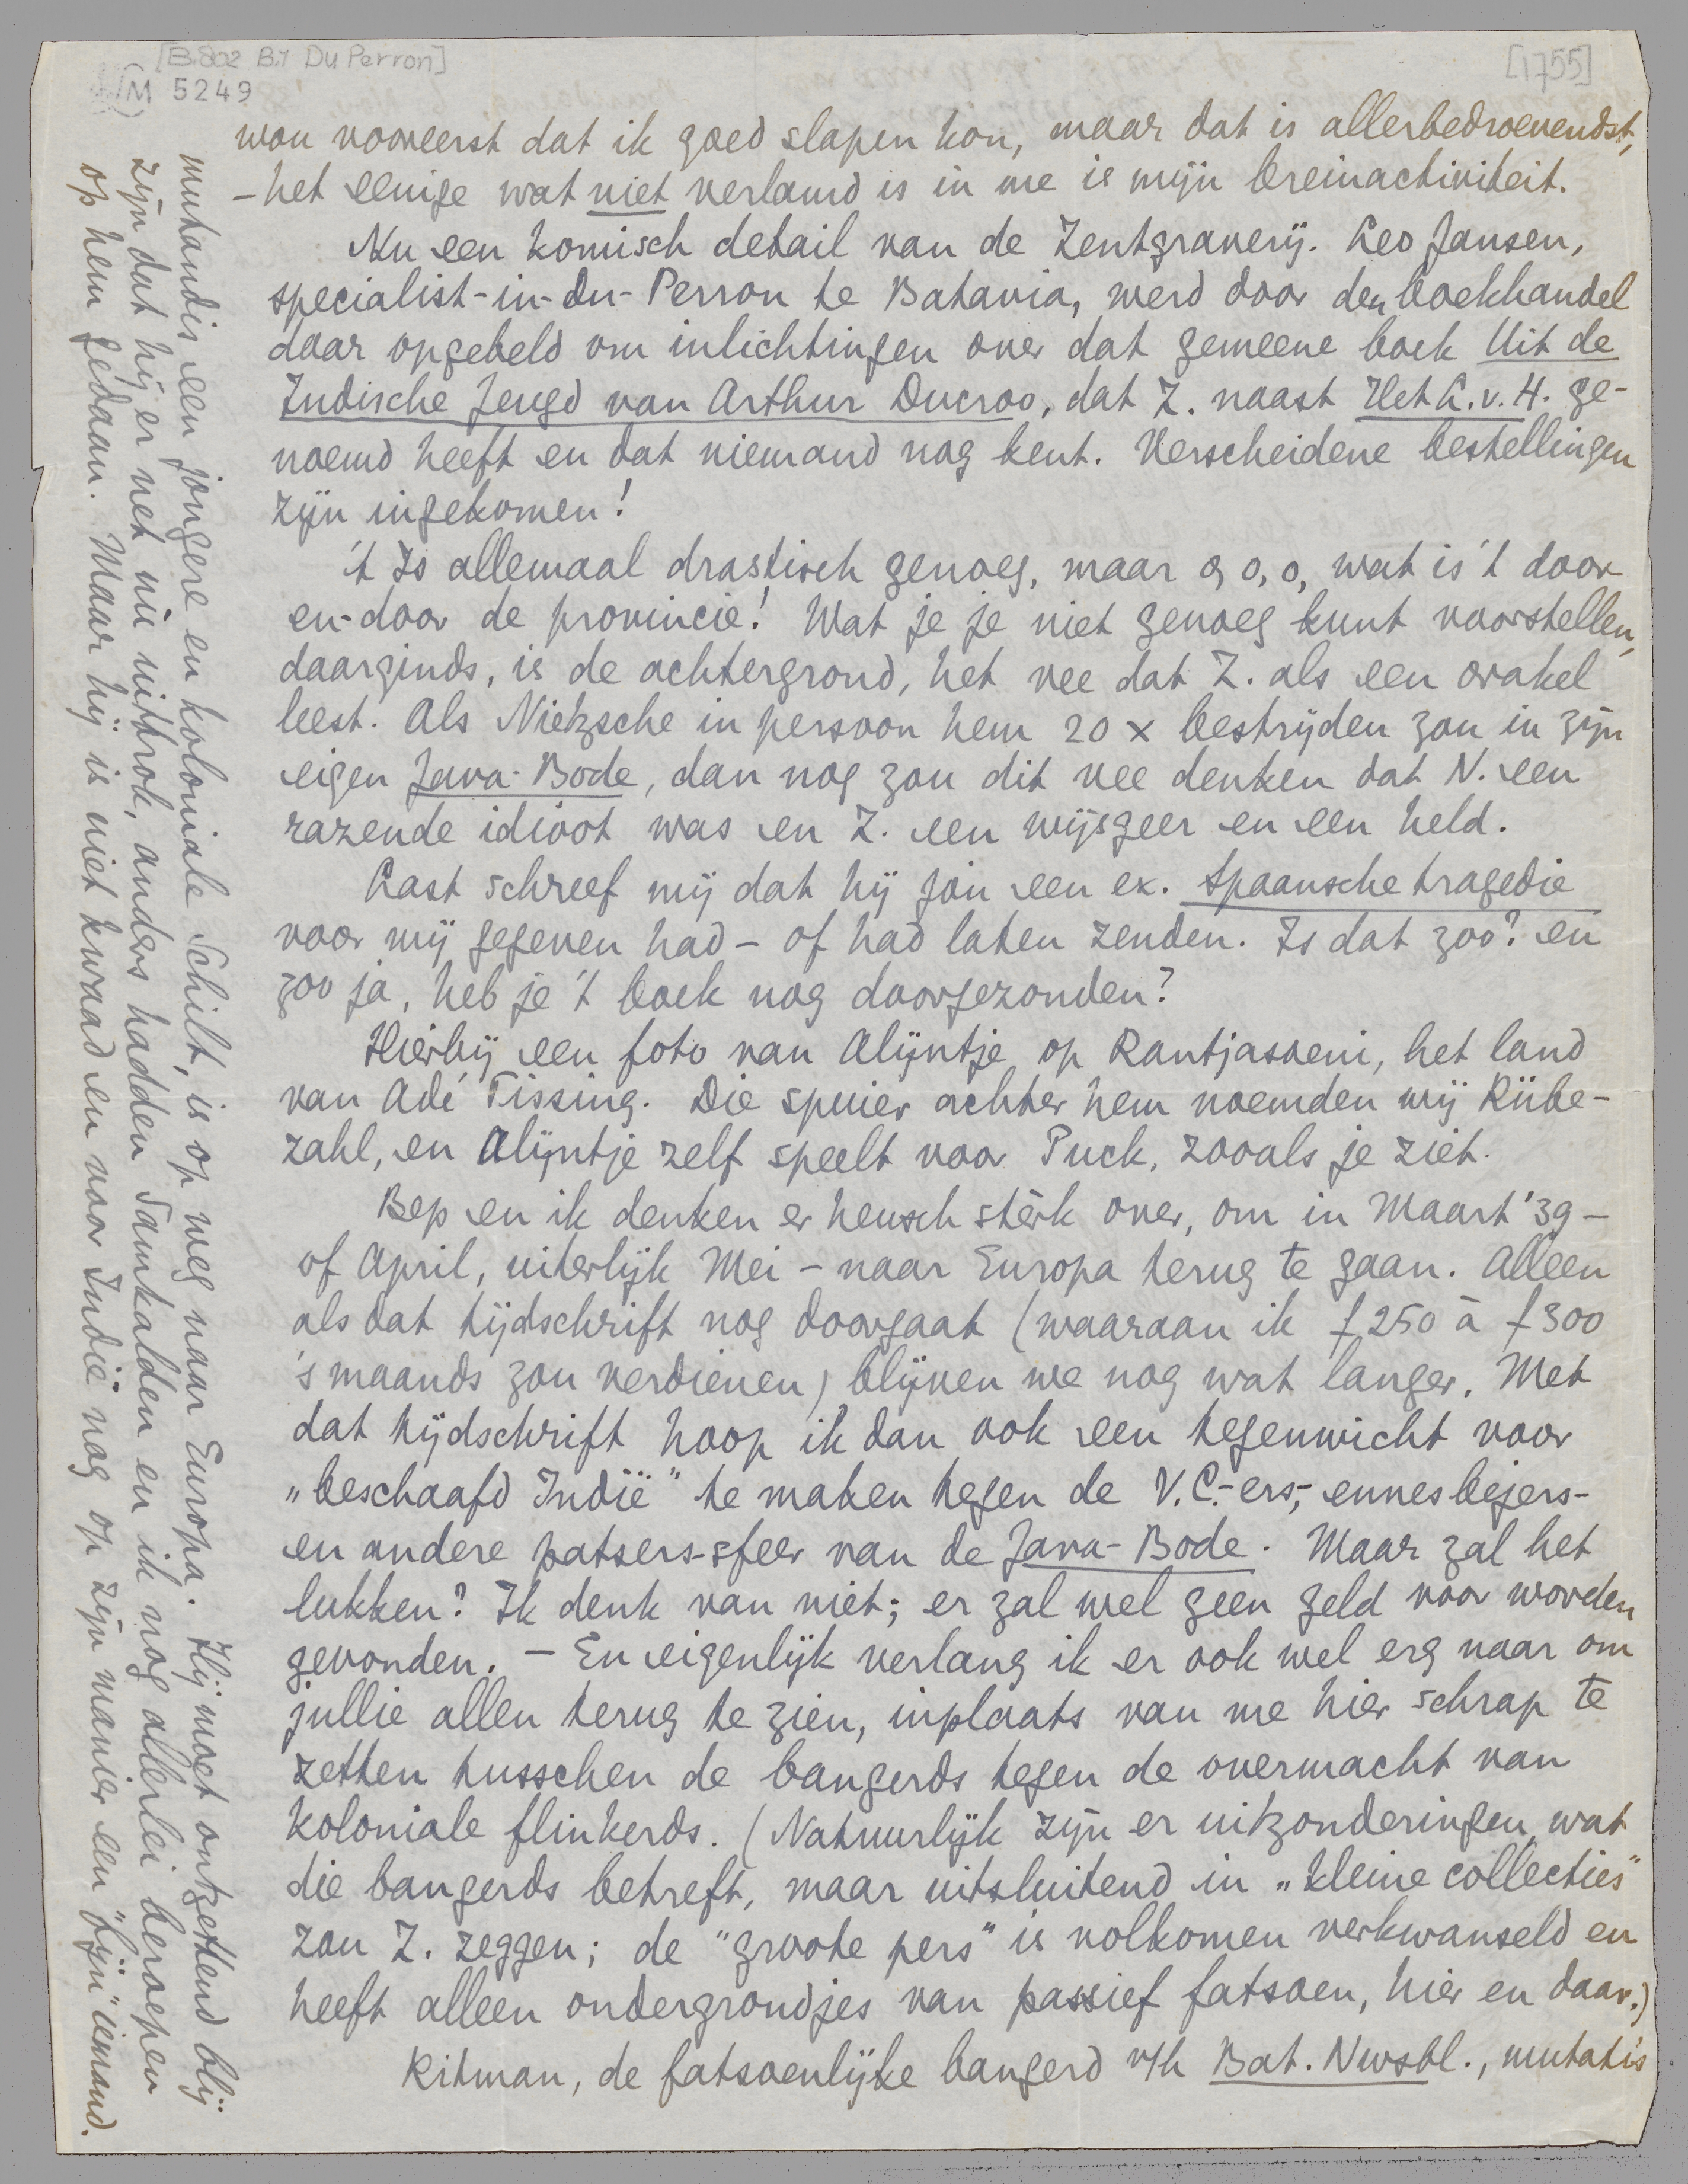 [B.802 B.1 Du Perron]
[1755]
M 5249
wou vooreerst dat ik goed slapen kon, maar dat is allerbedroevendst,
- het eenige wat niet verlamd is in me is mijn breinactiviteit.
Nu een komisch detail van de Zentgraverij. Leo Jansen,
specialist-in-Du-Perron te Batavia, werd door den boekhandel
daar opgebeld om inlichtingen over dat gemeene boek Uit de
Indische Jeugd van Arthur Ducroo, dat Z. naast Het L.v.H. ge-
noemd heeft en dat niemand nog kent. Verscheidene bestellingen
zijn ingekomen!
't Is allemaal drastisch genoeg, maar o, o, o, wat is 't door-
en-door de provincie! Wat je je niet genoeg kunt voorstellen,
daarginds, is de achtergrond, het vee dat Z. als een orakel
leest. Als Nietzsche in persoon hem 20 x bestrijden zou in zijn
eigen Java-Bode, dan nog zou dit vee denken dat N. een
razende idioot was en Z. een wijsgeer en een held.
Last schreef mij dat hij jou een ex. Spaansche tragedie
voor mij gegeven had - of had laten zenden. Is dat zoo? en
zoo ja, heb je 't boek nog doorgezonden?
Hierbij een foto van Alijntje op Rantjasoeni, het land
van Adé Tissing. Die spuier achter hem noemden wij Rübe-
zahl, en Alijntje zelf speelt voor Puck, zooals je ziet.
Bep en ik denken er heusch stèrk over, om in Maart '39 -
of April, uiterlijk Mei - naar Europa terug te gaan. Alleen
als dat tijdschrift nog doorgaat (waaraan ik f 250 à f 300
's maands zou verdienen) blijven we nog wat langer. Met
dat tijdschrift hoop ik dan ook een tegenwicht voor
„beschaafd Indië" te maken tegen de V.C.-ers-, ennesbejers-
en andere patsers-sfeer van de Java-Bode. Maar zal het
lukken? Ik denk van niet; er zal wel geen geld voor worden
gevonden. - En eigenlijk verlang ik er ook wel erg naar om
jullie allen terug te zien, inplaats van me hier schrap te
zetten tusschen de bangerds tegen de overmacht van
koloniale flinkerds. (Natuurlijk zijn er uitzonderingen, wat
die bangerds betreft, maar uitsluitend in „kleine collecties"
zou Z. zeggen; de "groote pers" is volkomen verkwanseld en
heeft alleen ondergrondjes van passief fatsoen, hier en daar.)
Ritman, de fatsoenlijke bangerd v/h Bat. Nwsbl., mutatis
mutandis een jongere en koloniale Schilt, is op weg naar Europa. Hij moet ontzettend blij
zijn dat hij er net nu uittrok, anders hadden Samkalden en ik nog allerlei beroepen
op hem gedaan. Maar hij is niet kwaad en voor Indië nog op zijn manier een "fijn" iemand.